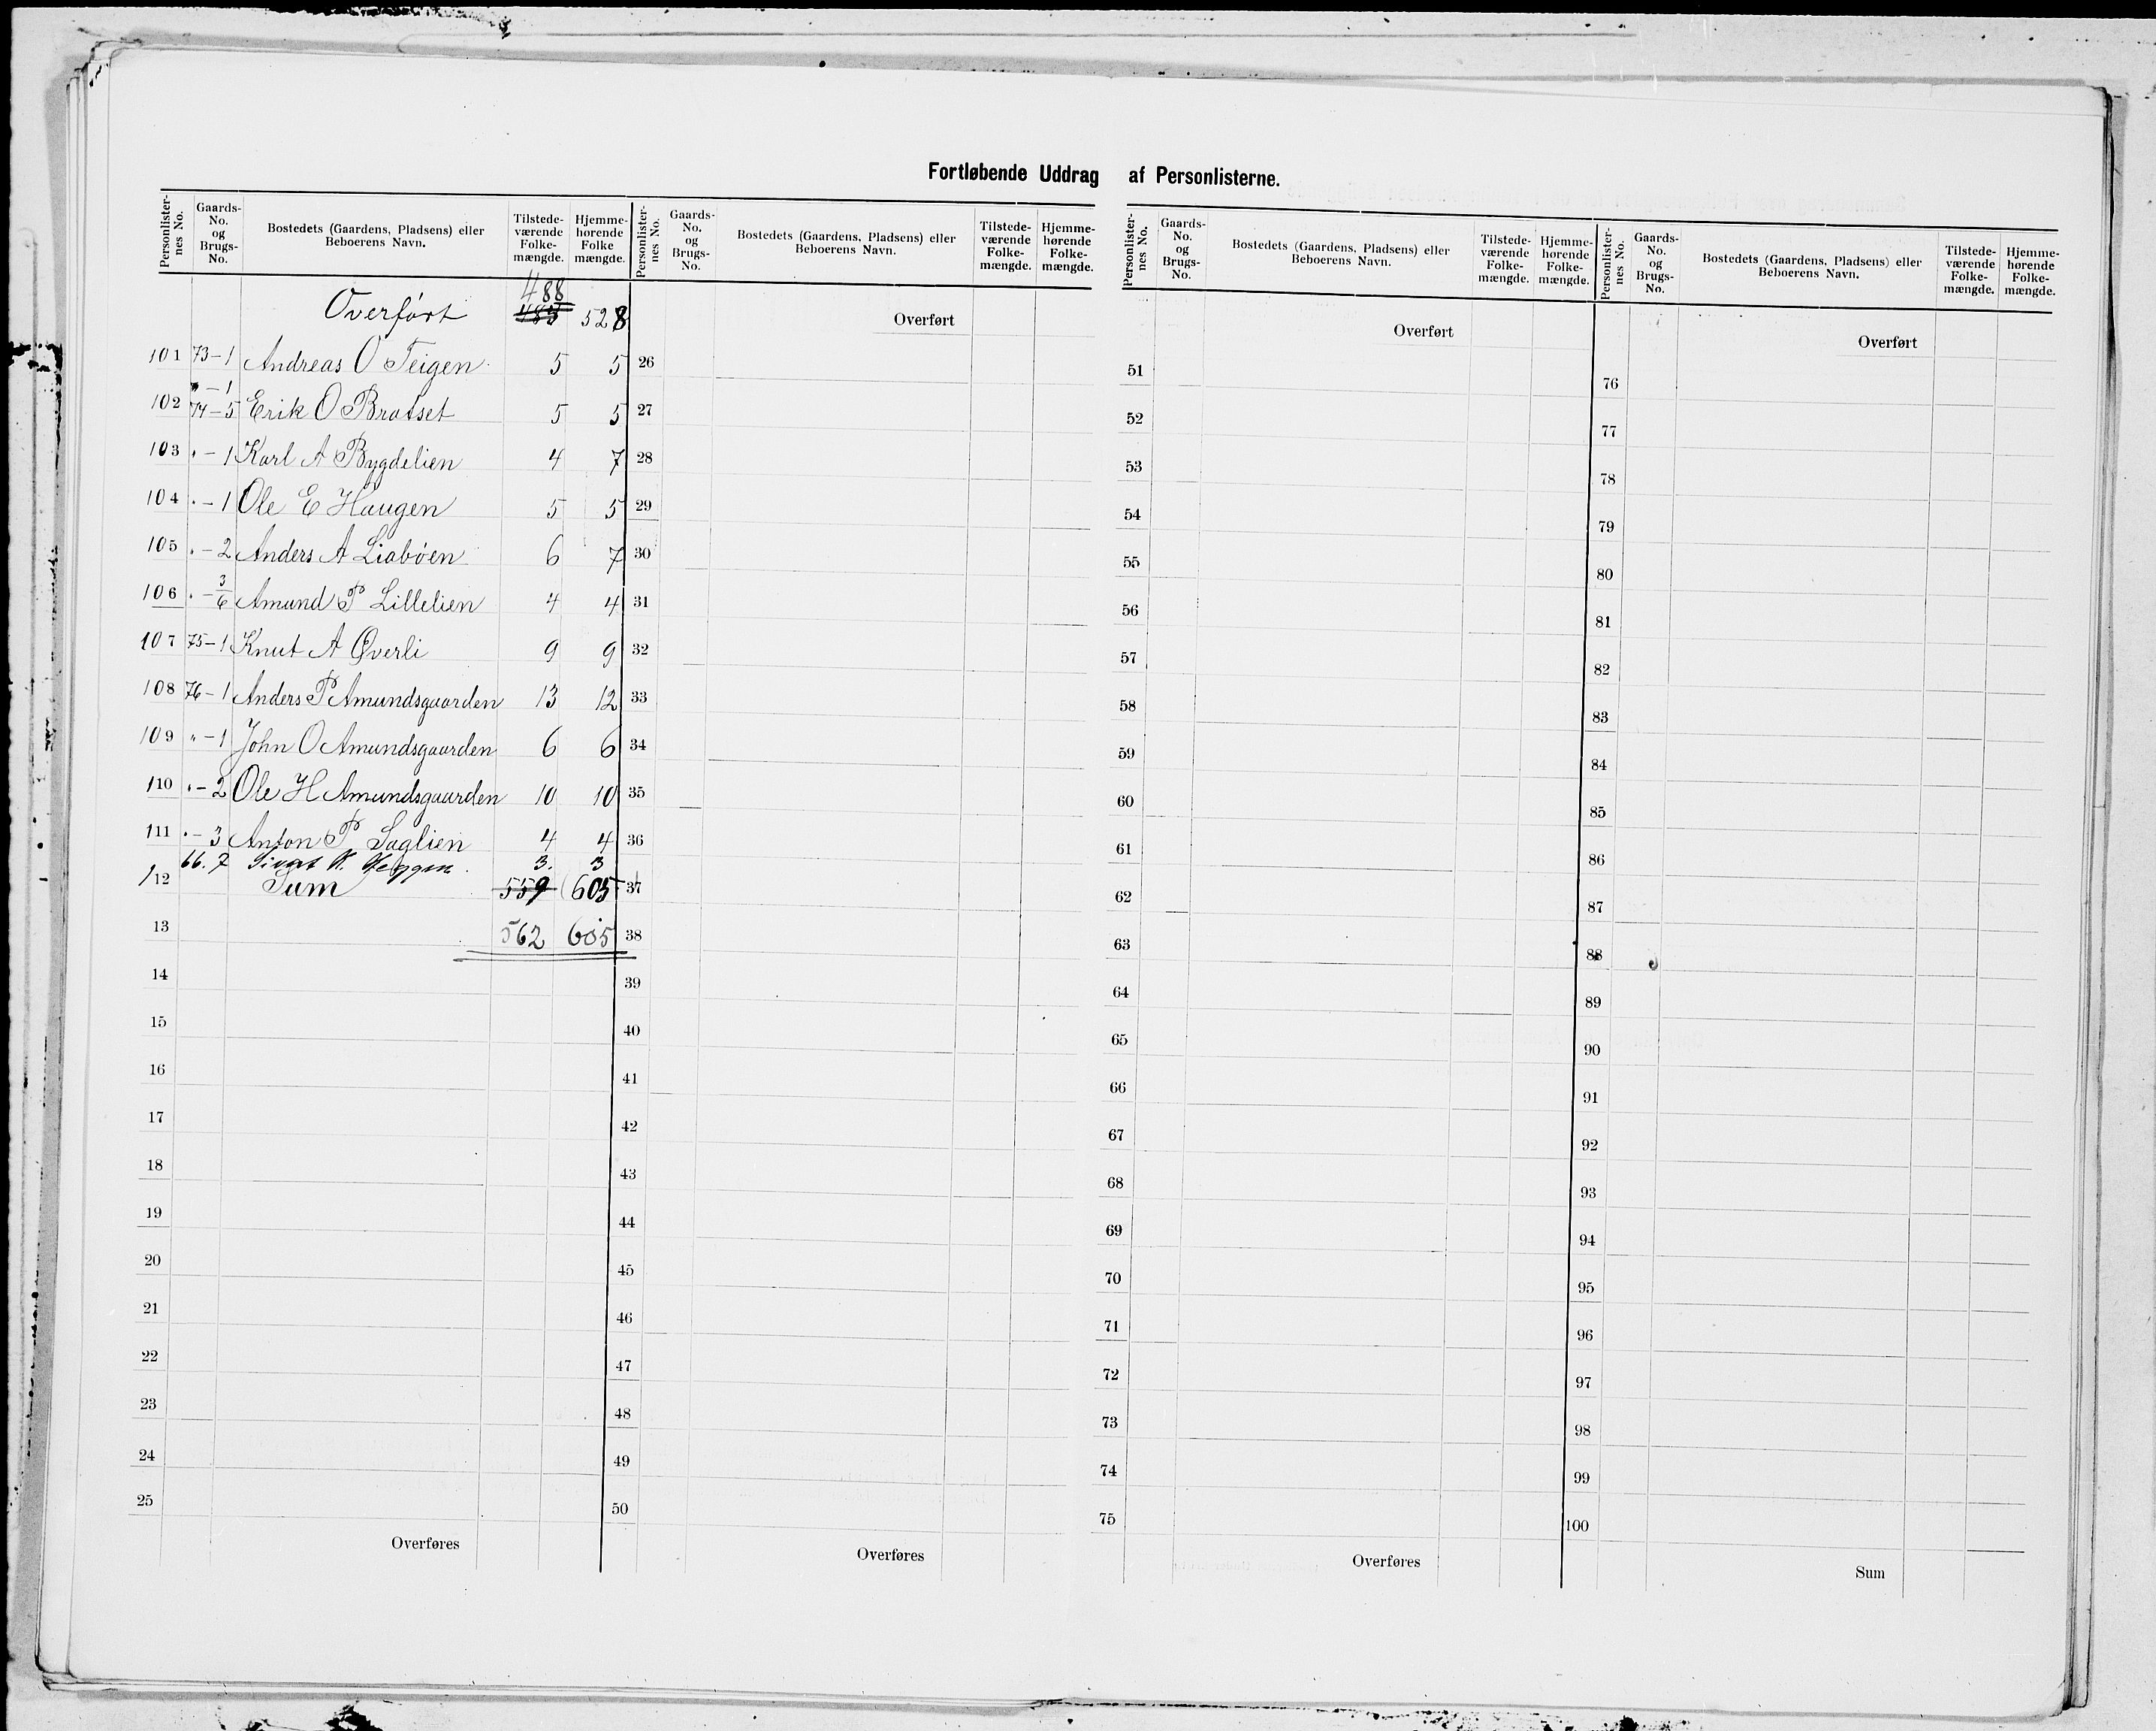 Fortløbende Uddrag af Personlisterne.
Personlister-nes No. Gaards-No. og Brugs-No. Bostedets (Gaardens, Pladsens) eller Beboerens Navn. Tilstede-værende Folke-mængde. Hjemme-hørende Folke mængde.
Overført 488 528
101 73-1 Andreas O Teigen 5 5
" - 1
102 74-5 Erik O Bratset 5 5
103 " - 1 Karl A Bygdelien 4 7
104 " - 1 Ole E Haugen 5 5
105 " - 2 Anders A Liabøen 6 7
106 " - 3/6 Amund P Lillelien 4 4
107 75-1 Knut A Øverli 9 9
108 76-1 Anders P Amundsgaarden 13 12
109 " - 1 John O Amundsgaarden 6 6
110 " - 2 Ole H Amundsgaarden 10 10
111 " - 3 Anton P Saglien 4 4
112 66.7 3. 3
Sum 559 605
13 562 605
14
15
16
17
18
19
20
21
22
23
24
25
Overføres
Personlister-nes No. Gaards-No. og Brugs-No. Bostedets (Gaardens, Pladsens) eller Beboerens Navn. Tilstede-værende Folke-mængde. Hjemme-hørende Folke-mængde.
Overført
26
27
28
29
30
31
32
33
34
35
36
37
38
39
40
41
42
43
44
45
46
47
48
49
50
Overføres
Personlister-nes No. Gaards-No. og Brugs-No. Bostedets (Gaardens, Pladsens) eller Beboerens Navn. Tilstede-værende Folke-mængde. Hjemme-hørende Folke-mængde.
Overført
51
52
53
54
55
56
57
58
59
60
61
62
63
64
65
66
67
68
69
70
71
72
73
74
75
Overføres
Personlister-nes No. Gaards-No. og Brugs-No. Bostedets (Gaardens, Pladsens) eller Beboerens Navn. Tilstede-værende Folke-mængde. Hjemme-hørende Folke-mængde.
Overført
76
77
78
79
80
81
82
83
84
85
86
87
88
89
90
91
92
93
94
95
96
97
98
99
100
Sum